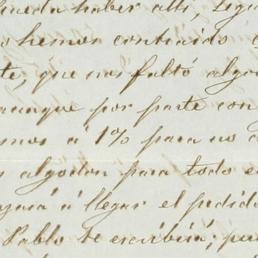 pueda haber alli, segun
hemos contraido
te, que nos faltó algo
aunque por parte con
mos á 1% para no
algodon para todo e
á llegar el pedido
Pablo te escribirá; pu